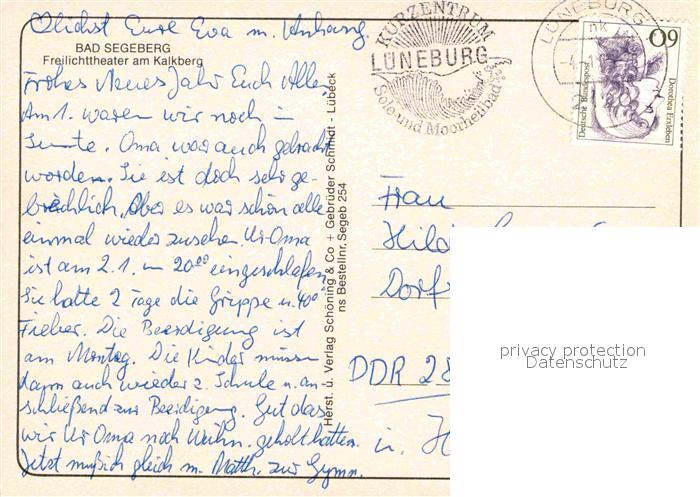 Eure Eva m. Anhang.
BAD SEGEBERG
Freilichttheater am Kalkberg
Frohes Neues Jahr Euch Allen
Am 1. waren wir noch in
. Oma war auch gebracht
worden. Sie ist doch sehr ge-
brechlich, Aber es war schön alle
einmal wieder zusehen. Ur Oma
ist am 2.1. um 20°° eingeschlafen,
Sie hatte 2 Tage die Grippe u. 40°
Fieber. Die Beerdigung ist
am Montag. Die Kinder müssen
dann auch wieder z. Schule u. an-
schließend zur Beerdigung. Gut das
wir Ur Oma noch Weihn. geholt hatten.
Jetzt muß ich gleich m. Matth. zur Gymn.
Herst. u. Verlag Schöning & Co + Gebrüder Schmidt - Lübeck
ns Bestellnr. Segeb 254
KURZENTRUM
LÜNEBURG
Sole-und Moorheilbad
LÜNEBURG
60
Deutsche Bundespost
Dorothea Erxleben
Frau
Dorf
DDR 28
privacy protection
Datenschutz